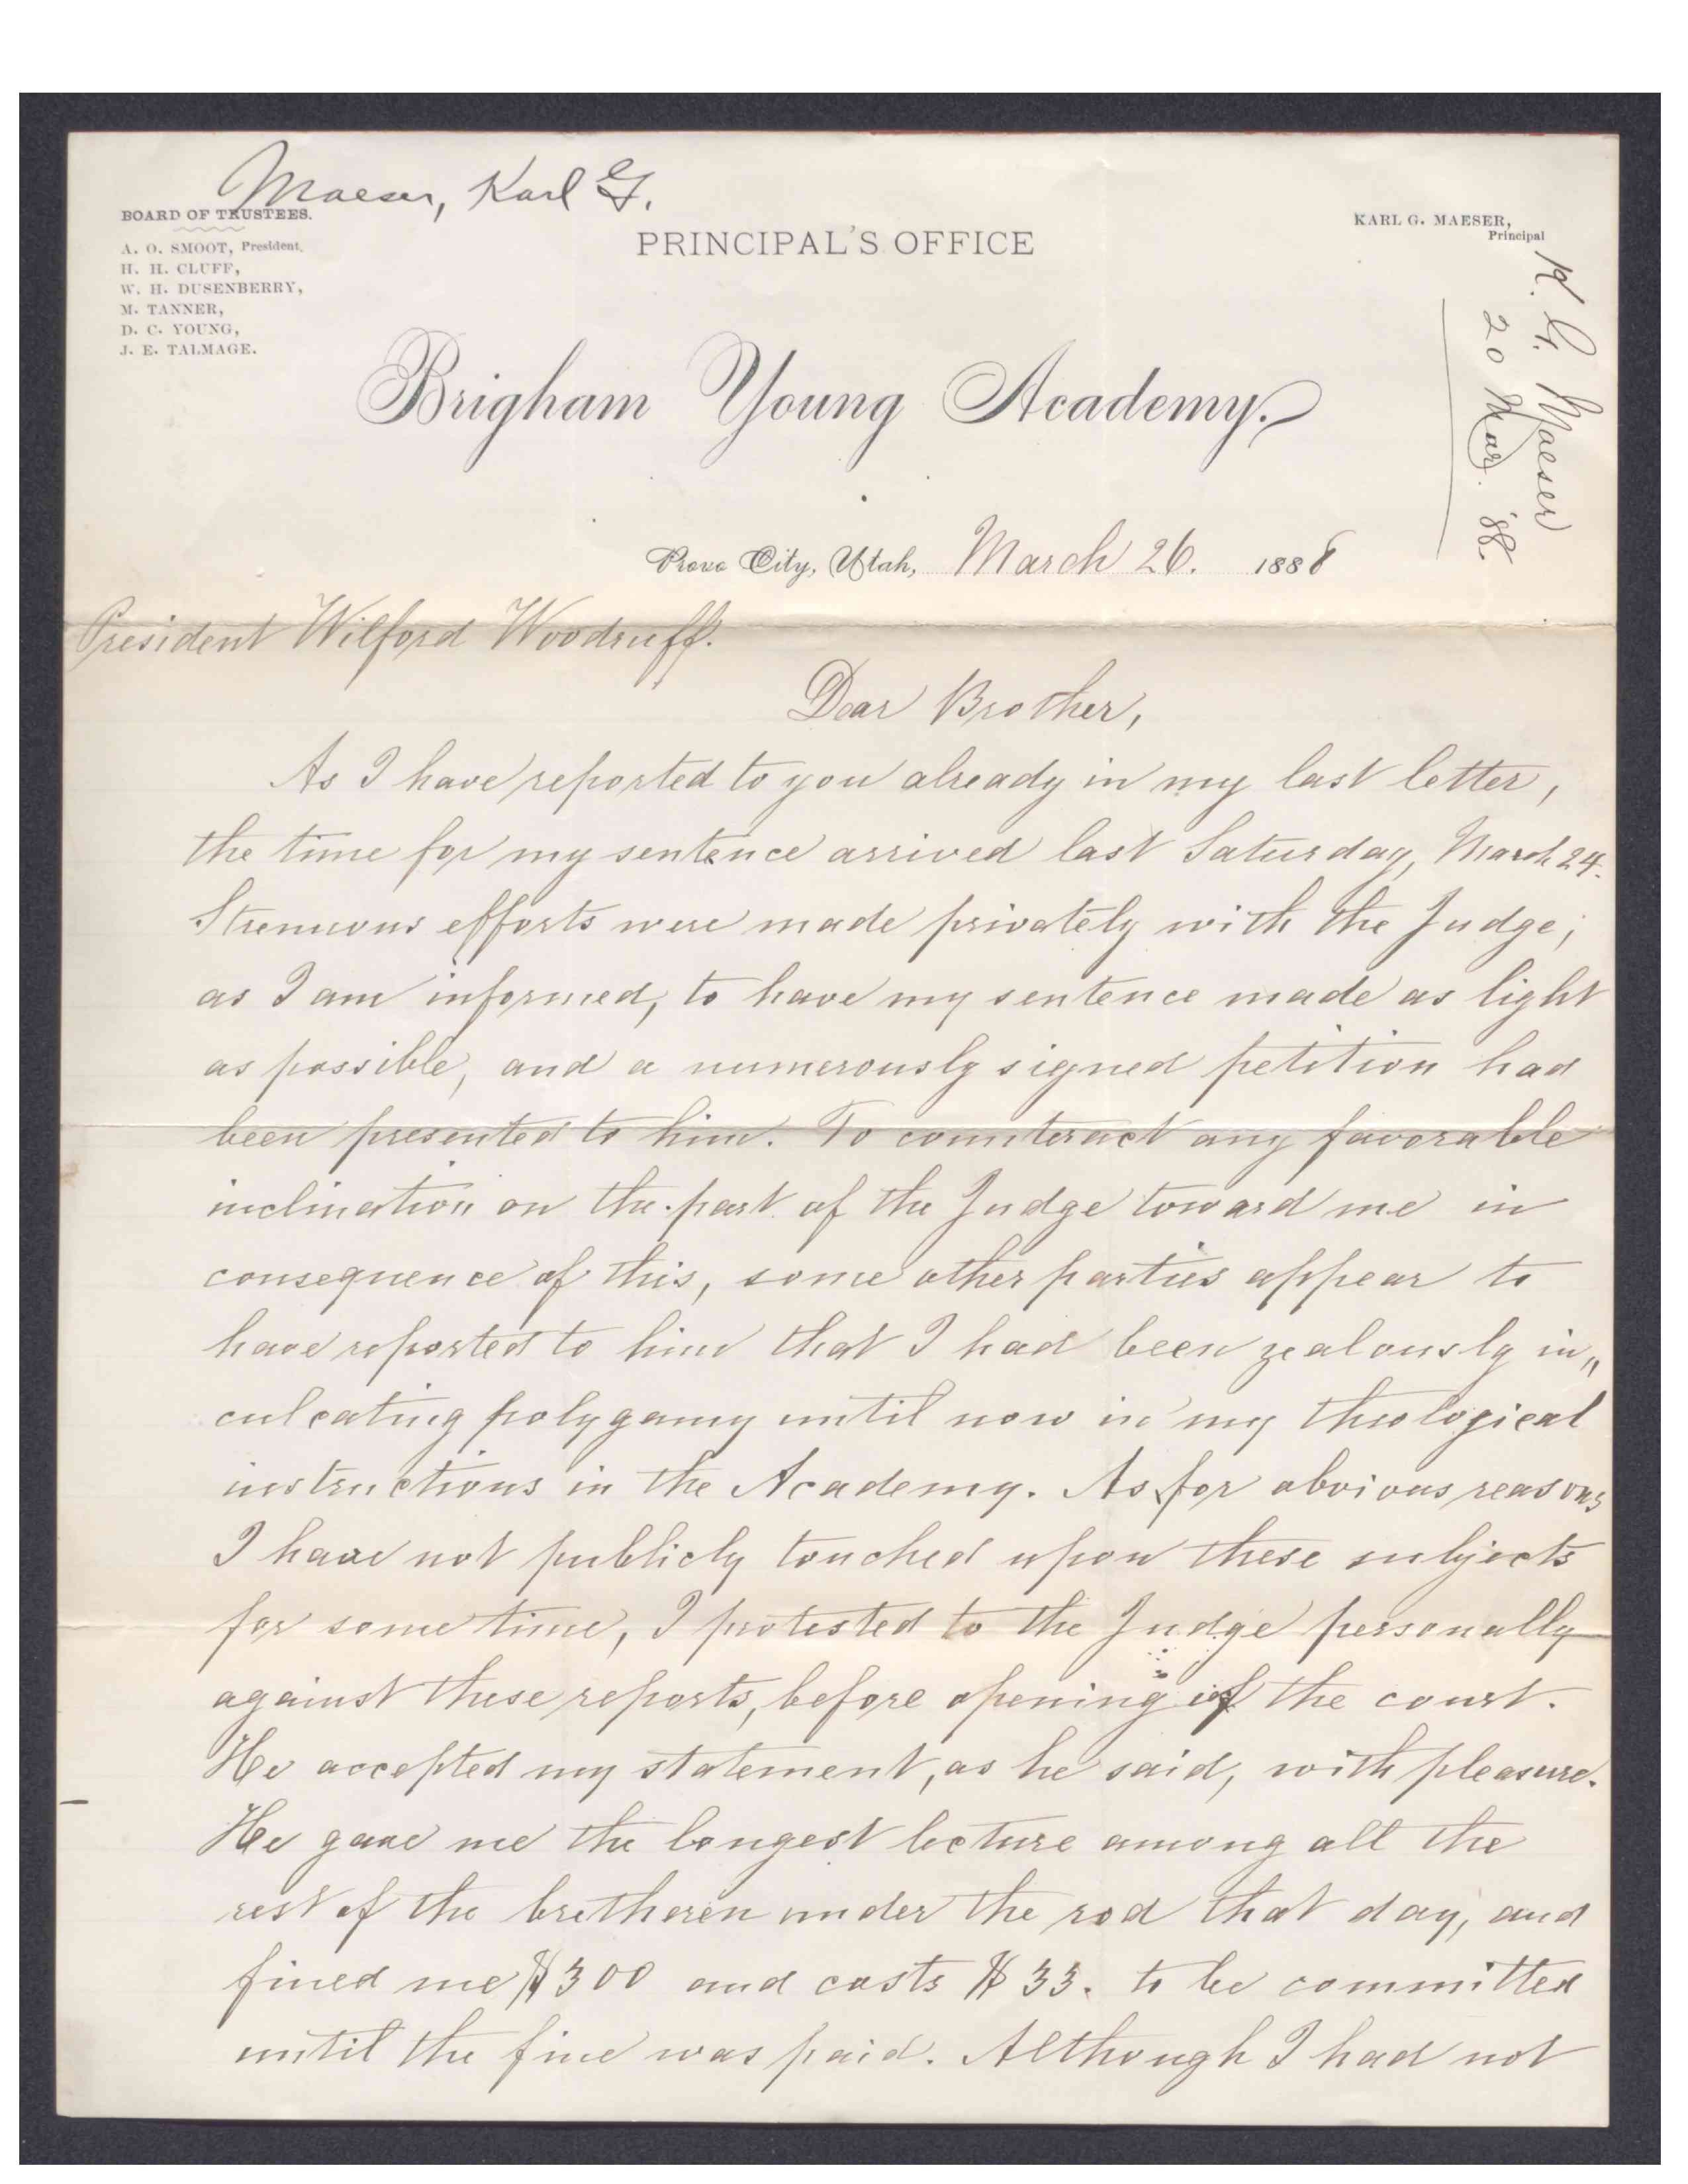 Maeser, Karl G.
BOARD OF TRUSTEES.
A. O. SMOOT, President,
H. H. CLUFF,
W. H. DUSENBERRY,
M. TANNER,
D. C. YOUNG,
J. E. TALMAGE.
PRINCIPAL'S OFFICE
KARL G. MAESER,
Principal
K. G. Maeser
20 Mar. '88.
Brigham Young Academy.
Provo City, Utah, March 26. 1888
President Wilford Woodruff.
Dear Brother,
As I have reported to you already in my last letter,
the time for my sentence arrived last Saturday, March 24.
Strenuous efforts were made privately with the Judge;
as I am informed, to have my sentence made as light
as possible, and a numerously signed petition had
been presented to him. To counteract any favorable
inclination on the part of the Judge toward me in
consequence of this, some other parties appear to
have reported to him that I had been zealously in„
culcating polygamy until now in my theological
instructions in the Academy. As for obvious reasons
I have not publicly touched upon these subjects
for some time, I protested to the Judge personally
against these reports, before opening of the court.
He accepted my statement, as he said, with pleasure.
He gave me the longest lecture among all the
rest of the bretheren under the rod that day, and
fined me $300 and costs $33. to be committed
until the fine was paid. Although I had not